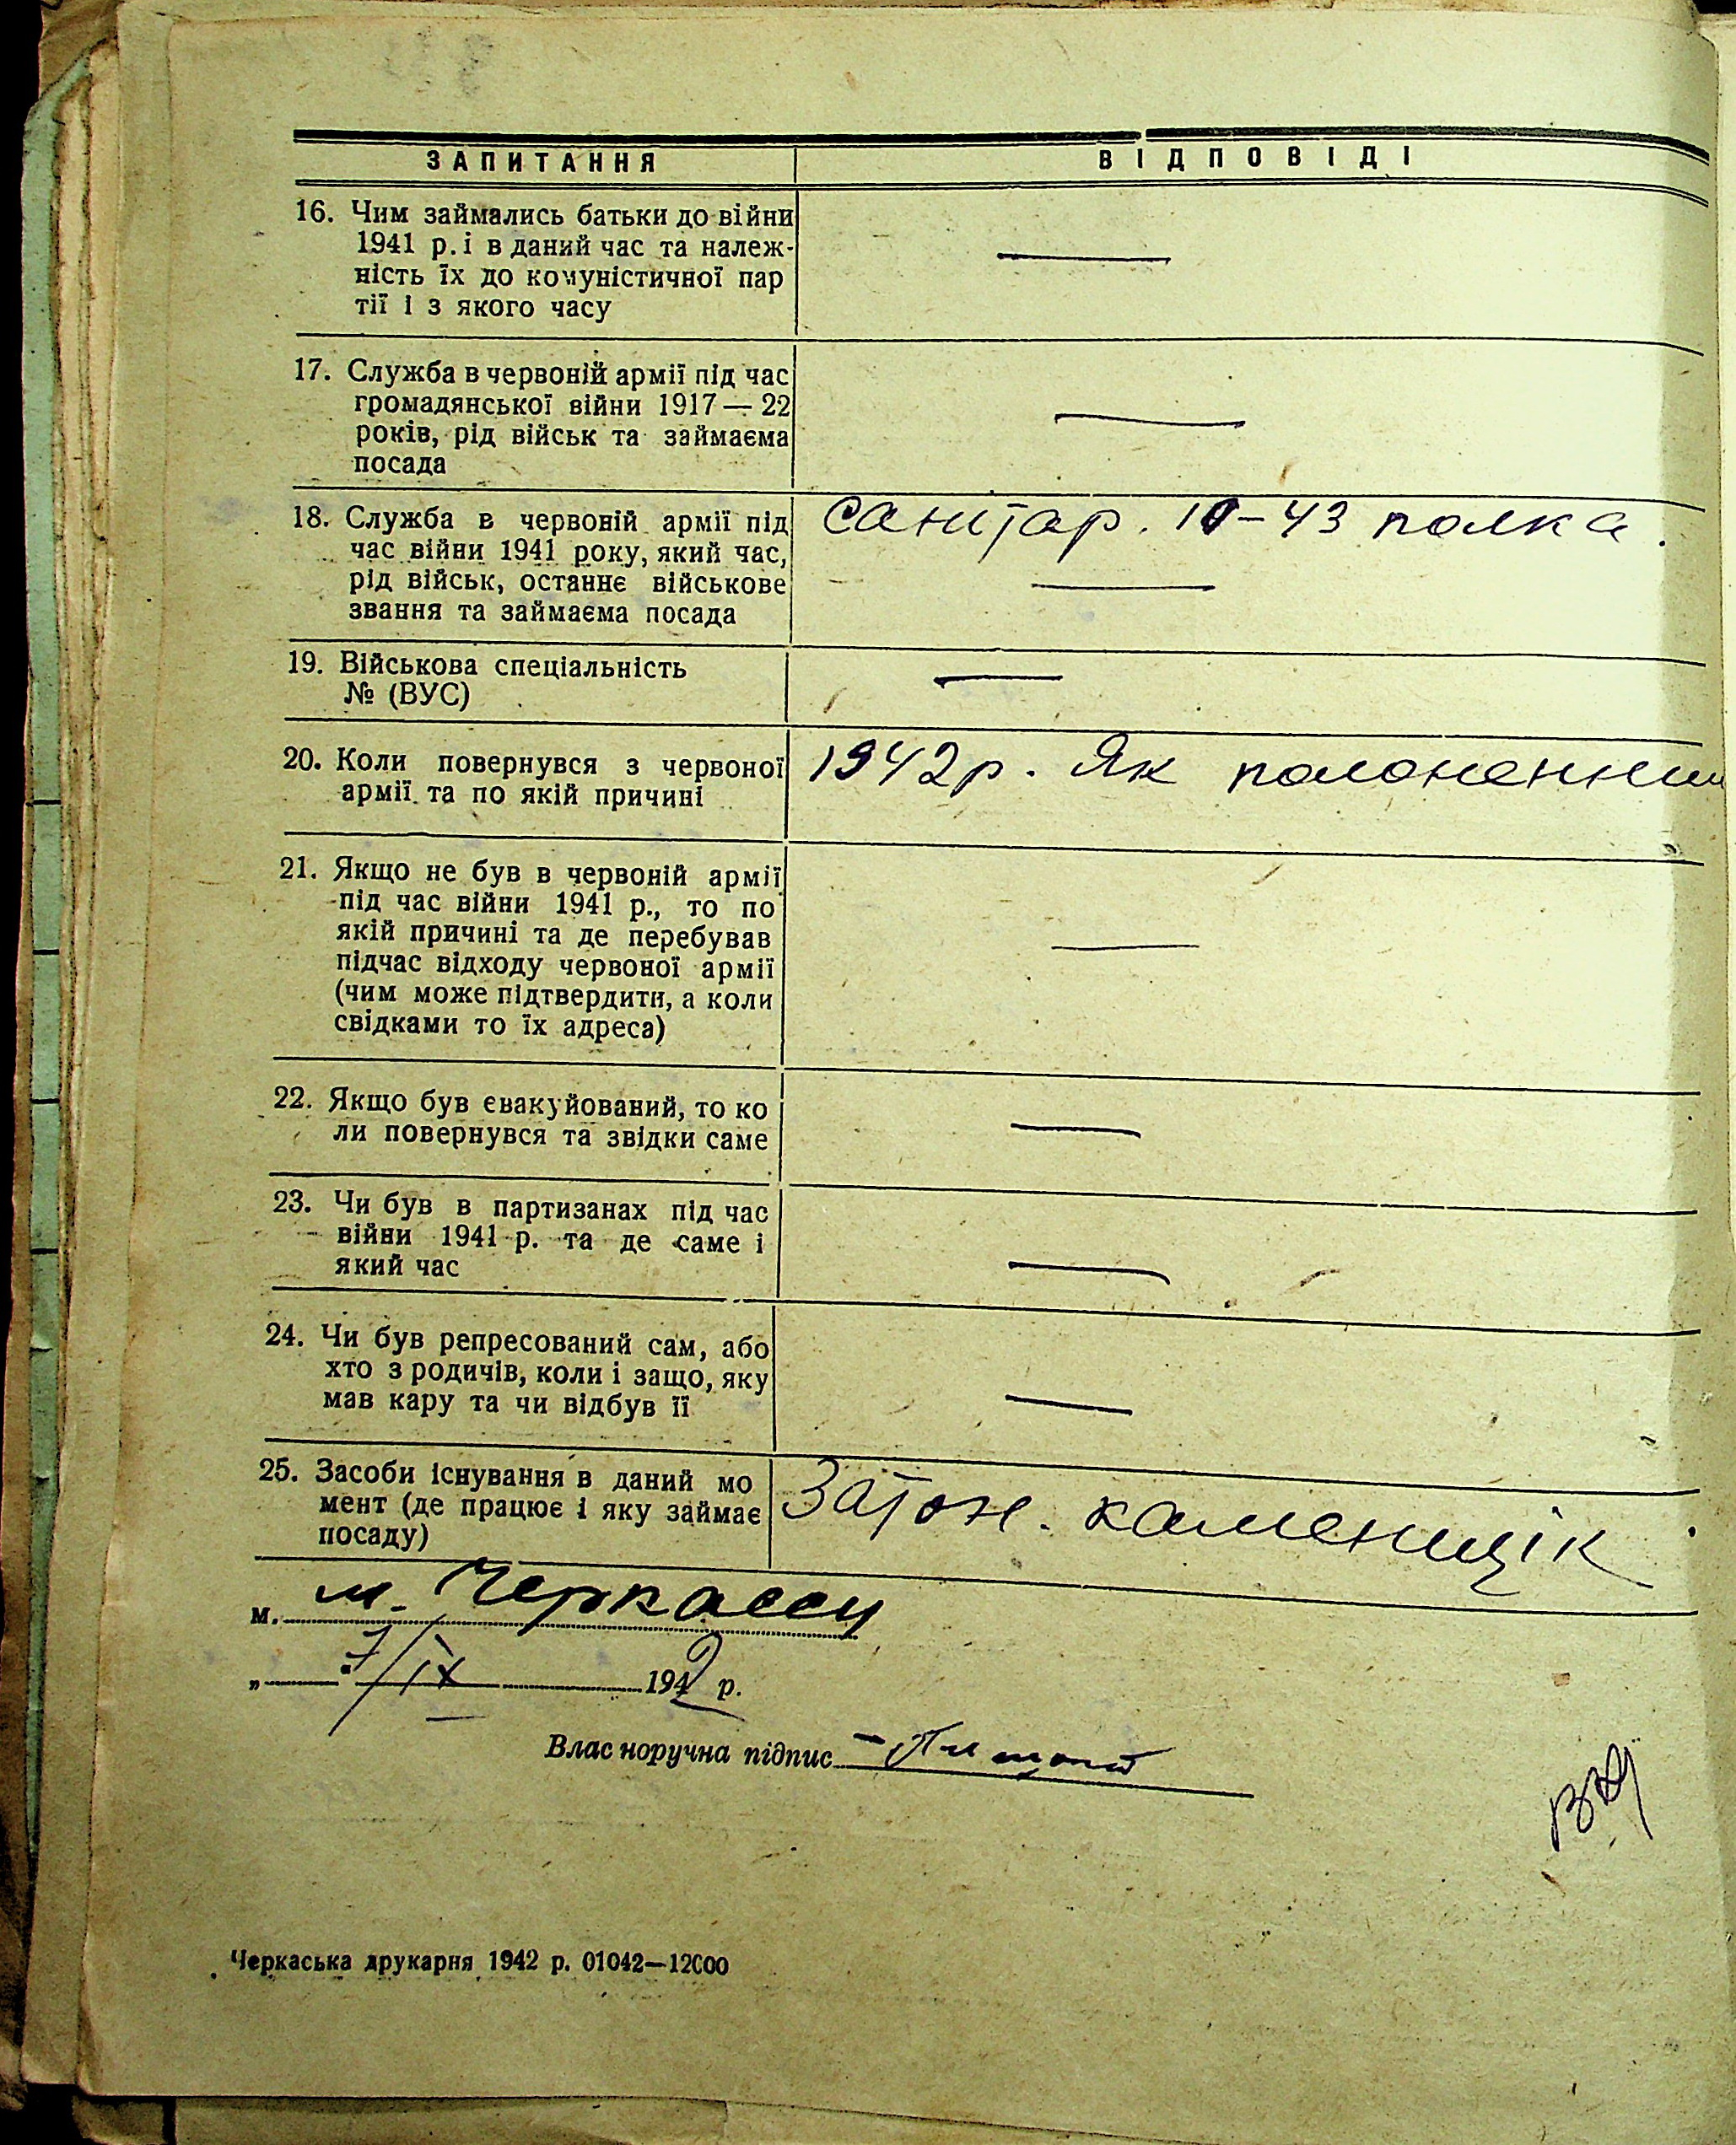 ЗАПИТАННЯ ВІДПОВІДІ
16. Чим займались батьки до війни
1941 р. і в даний час та належ-
ність їх до комуністичної пар
тії і з якого часу
17. Служба в червоній армії під час
громадянської війни 1917 — 22
років, рід військ та займаєма
посада
18. Служба в червоній армії під
час війни 1941 року, який час,
рід військ, останнє військове
звання та займаєма посада
санітар. 10-43 полка.
19. Військова спеціальність
№ (ВУС)
20. Коли повернувся з червоної
армії та по якій причині
1942р. Як полоненний
21. Якщо не був в червоній армії
під час війни 1941 р., то по
якій причині та де перебував
підчас відходу червоної армії
(чим може підтвердити, а коли
свідками то їх адреса)
22. Якщо був євакуйований, то ко
ли повернувся та звідки саме
23. Чи був в партизанах під час
війни 1941 р. та де саме і
який час
24. Чи був репресований сам, або
хто з родичів, коли і защо, яку
мав кару та чи відбув її
25. Засоби існування в даний мо
мент (де працює і яку займає
посаду)
Затон. каменщік
м. м. Черкассы
„ 7/IX 1942 р.
Власноручна підпис
Черкаська друкарня 1942 р. 01042—12000